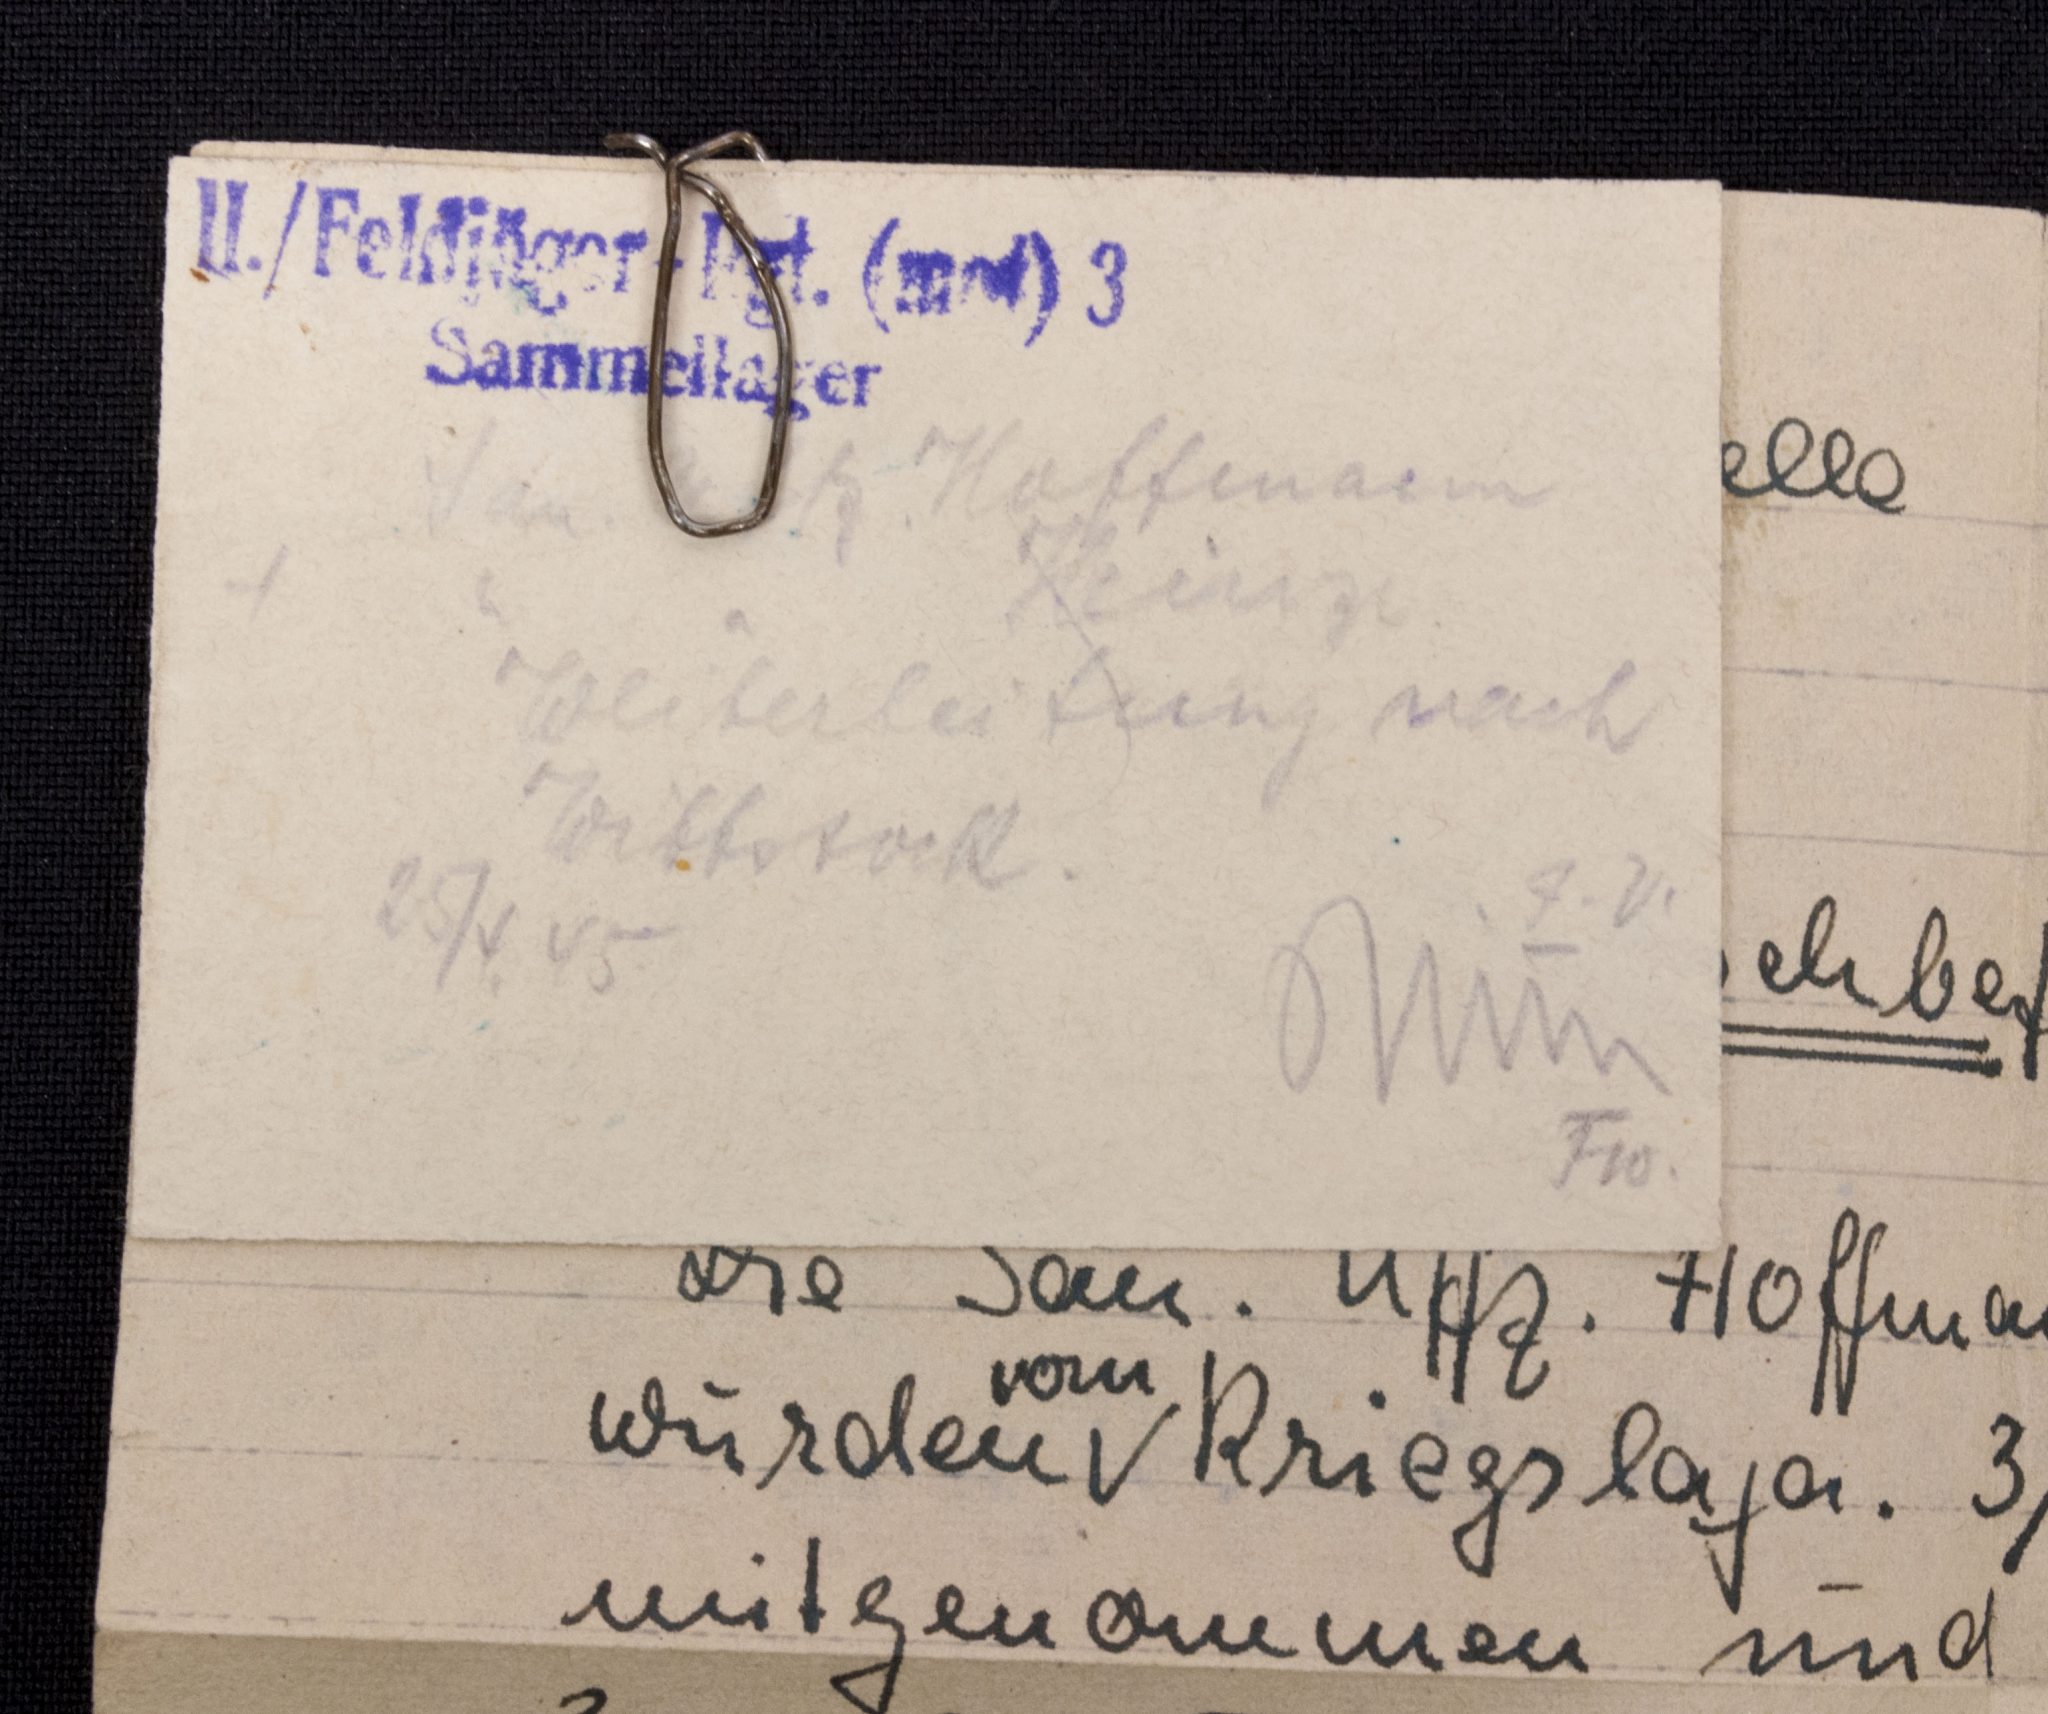 II./Feldjäger-Rgt. (mot) 3
Sammellager
San. Uffz. Hoffmann
+ " " Heinze
Weiterleitung nach
Wittstock.
25/4. 45
I. V.
Fw.
elle
schbef
die San. Uffz. Hoffman
wurden vom Kriegslaza. 3/
mitgenommen und